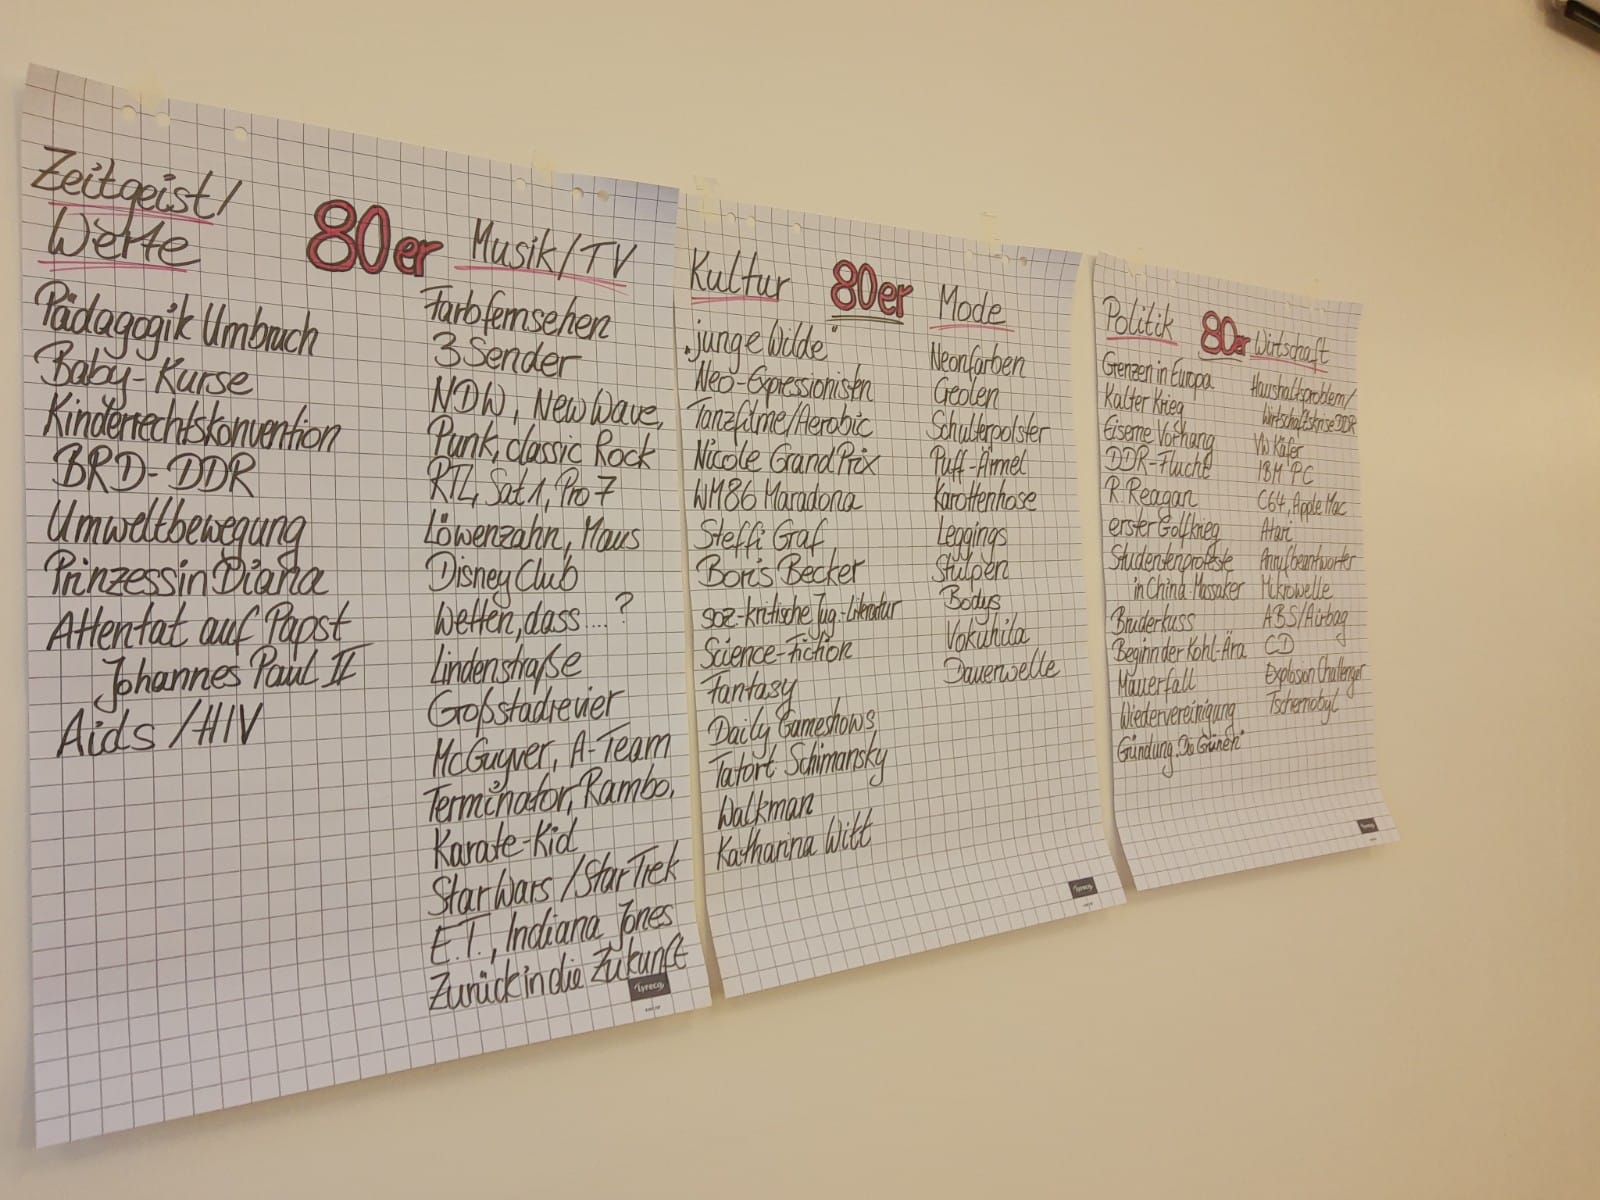 Zeitgeist/
Werte
Pädagogik Umbruch
Baby-Kurse
Kinderrechtskonvention
BRD-DDR
Umweltbewegung
Prinzessin Diana
Attentat auf Papst
Johannes Paul II
Aids /HIV
80er
Musik/TV
Farbfernsehen
3 Sender
NDW, New Wave,
Punk, classic Rock
RTL, Sat1, Pro7
Löwenzahn, Maus
Disney Club
Wetten, dass....?
Lindenstraße
Großstadrevier
McGuyver, A-Team
Terminator, Rambo,
Karate-Kid
Star Wars /Star Trek
E.T., Indiana Jones
Zurück in die Zukunft
Lyreco
Kultur
„junge Wilde"
Neo-Expressionisten
Tanzfilme/Aerobic
Nicole Grand Prix
WM86 Maradona
Steffi Graf
Boris Becker
soz-kritische Jug.-Literatur
Science-Fiction
Fantasy
Daily Gameshows
Tatort Schimansky
Walkman
Katharina Witt
80er
Mode
Neonfarben
Geolen
Schulterpolster
Puff-Ärmel
Karottenhose
Leggings
Stulpen
Bodys
Vokuhila
Dauerwelle
Lyreco
Politik
Grenzen in Europa
Kalter Krieg
Eiserne Vorhang
DDR-Flucht
R. Reagan
erster Golfkrieg
Studentenproteste
in China-Massaker
Bruderkuss
Beginn der Kohl-Ära
Mauerfall
Wiedervereinigung
Gündung „Die Grünen"
80er
Wirtschaft
Haushaltsproblem/
Wirtschaftskrise DDR
VW Käfer
IBM PC
C64, Apple Mac
Atari
Anrufbeantworter
Mikrowelle
ABS/Airbag
CD
Explosion Challenger
Tschernobyl
Lyreco